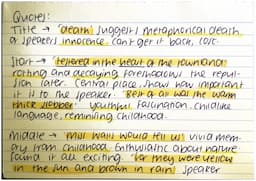 Quotes:
Title → 'death' suggests metaphorical death
of speakers innocence. can't get it back, lost.
Start → 'festered in the heat of the townland'
rotting and decaying, foreshadows the repul-
sion later. Central place, shows how important
it is to the speaker. 'Best of all was the warm
thick slobber' youthful fascination. childlike
language, remaining childhood.
Middle → 'Miss Walls would tell us' vivid mem-
ory from childhood. Enthusiastic about nature
found it all exciting. 'For they were yellow
in the sun and brown in rain' speaker